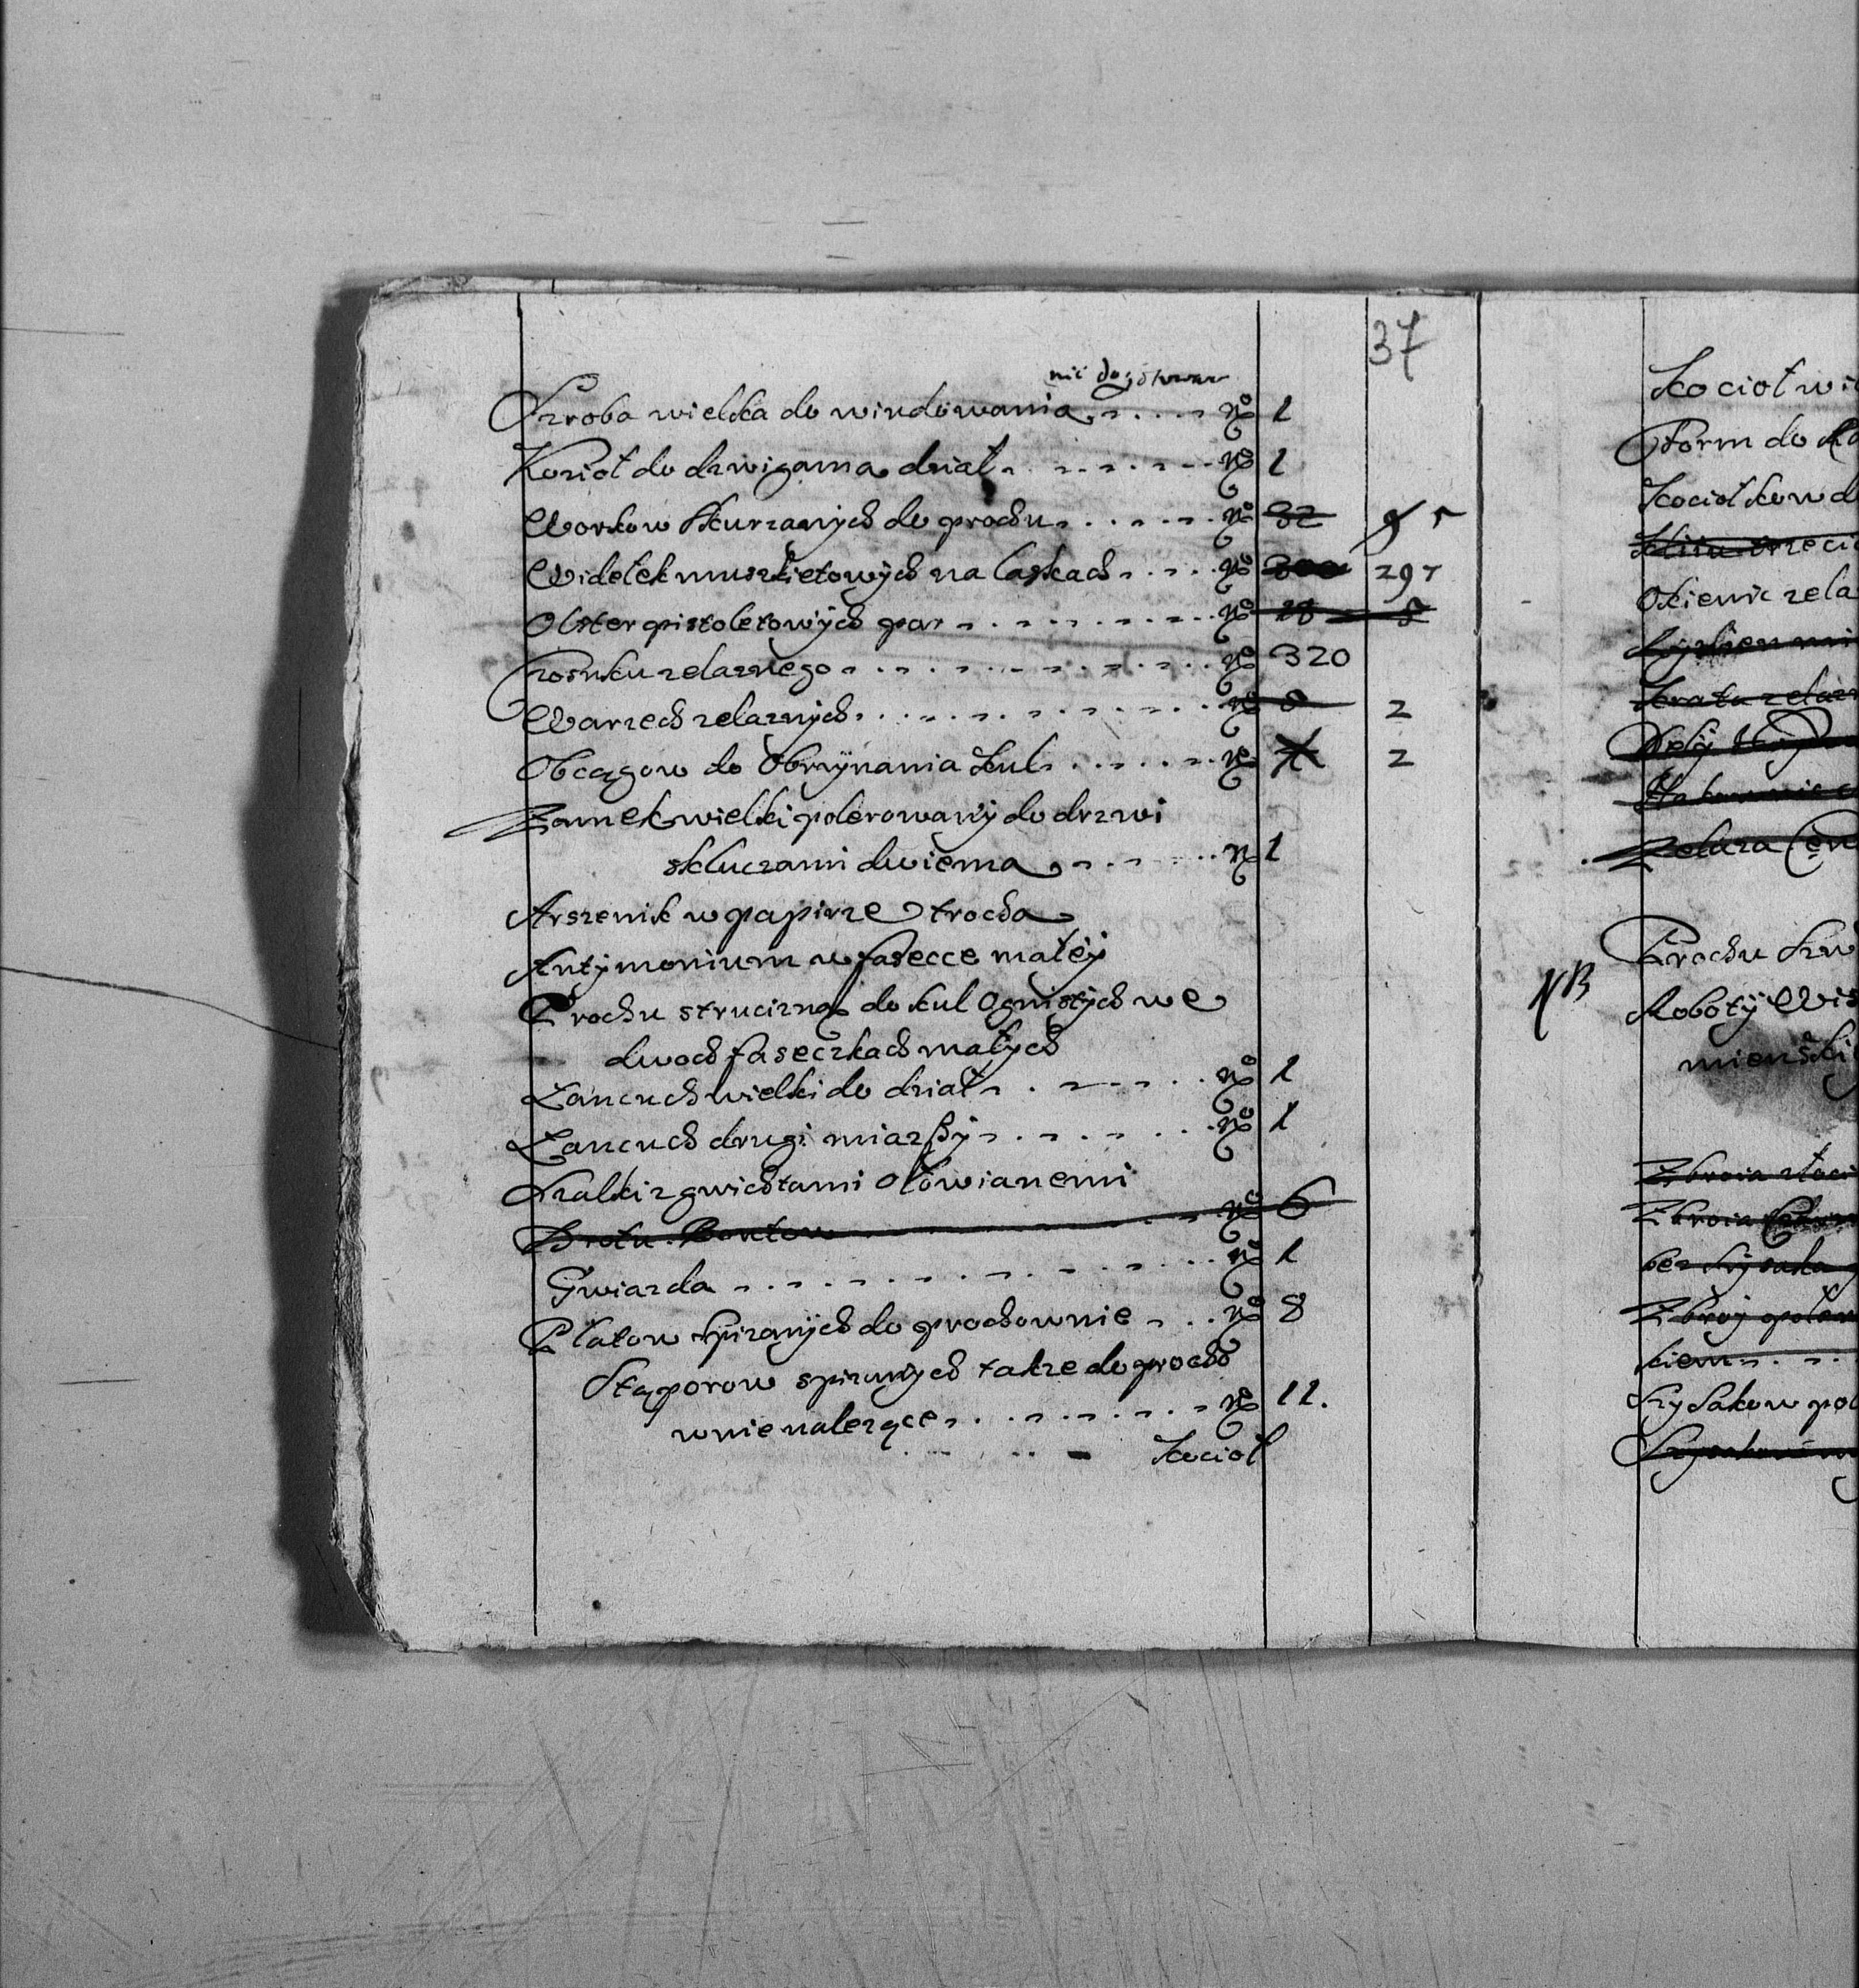 37
nie dogotowan
Szroba wielka do windowania . . . . No 1
Kozioł do dzwigania dział . . . . . . No 1
Workow skurzanÿch do prochu . . . . . No 32
Widełek muszkietowÿch na laskach . . . . No 300 297
Olster pistoletowÿch par . . . . . . . . No 18 8
Prosnku zelaznego . . . . . . . . . . No 320
Warzech zelaznÿch . . . . . . . . . . No 8 2
Obcągow do Obrzÿnania kul . . . . . . No 2
Zamek wielki polerowanÿ do drzwi
z kluczami dwiema . . . . . No 1
Arszenik w papirze trocha
Antÿmonium w fasecce małeÿ
Prochu strucizną do kul Ognistÿch we
dwoch faseczkach małÿch
Łancuch wielki do dział . . . . . . No 1
Łancuch drugi miązszÿ . . . . . . No 1
Szalki z gwichtami ołowianemi
Drotu Bontow . . . . . . . . No 6
Gwiazda . . . . . . . . . . . . No 1
Płatow spizanÿch do prochownie . . . No 8
Stąporow spizanÿch takze do procho
wnie nalezące . . . . . . . . No 11.
Kocioł
Kocioł wi
Form do
Kociołkow d
Okienic zela
Zelaza
NB
Prochu
Robotÿ Wis
mienski
Zbroia złoci
Zbroia
bez szÿszaka
Zbroÿ poler
kiem . . . .
Szyszakow pol